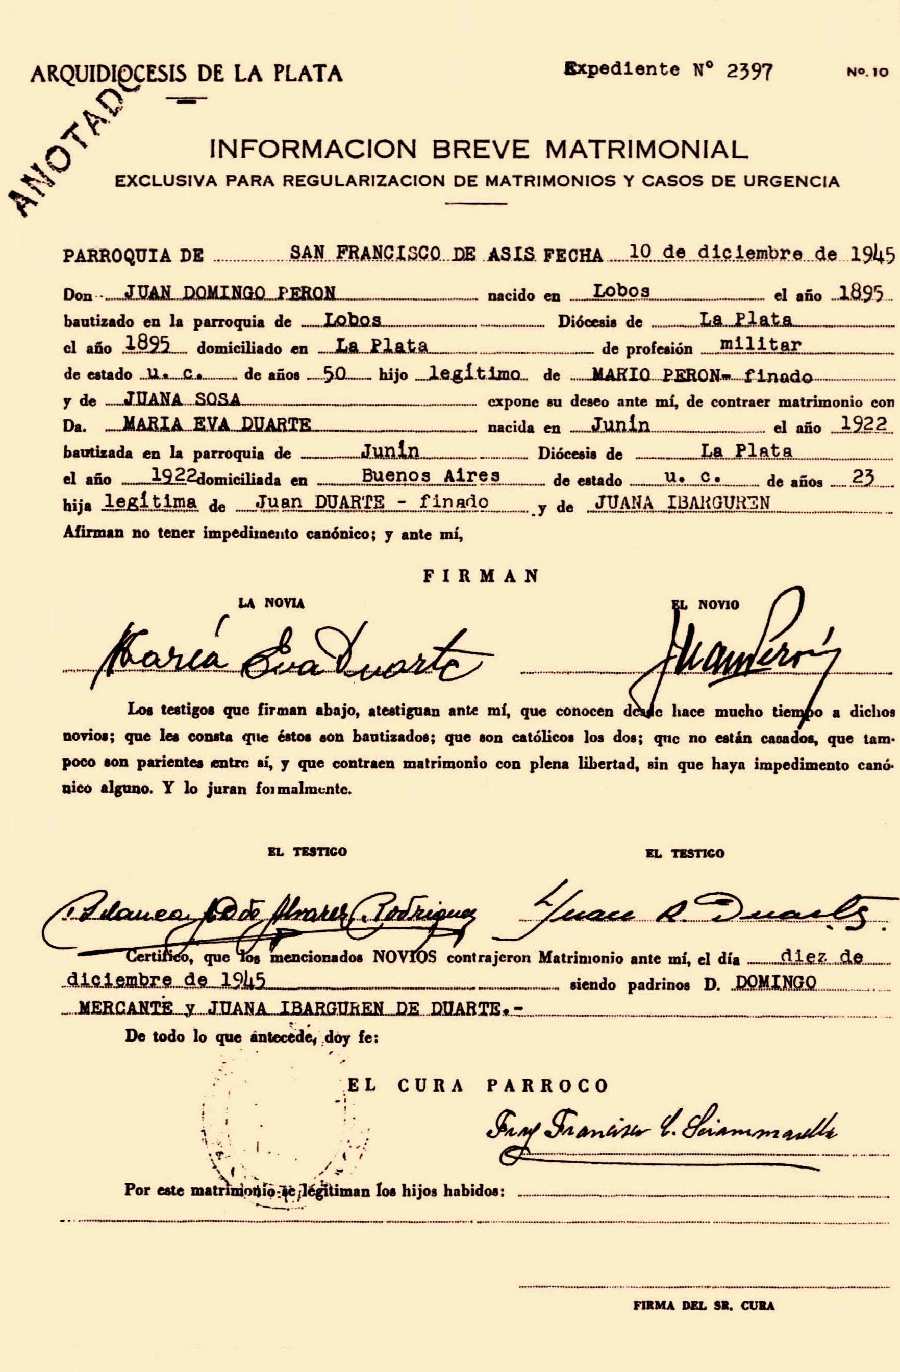 ARQUIDIOCESIS DE LA PLATA
Expediente Nº 2397
No. 10
ANOTADO
INFORMACION BREVE MATRIMONIAL
EXCLUSIVA PARA REGULARIZACION DE MATRIMONIOS Y CASOS DE URGENCIA
PARROQUIA DE SAN FRANCISCO DE ASIS FECHA 10 de diciembre de 1945
Don JUAN DOMINGO PERON nacido en Lobos el año 1895
bautizado en la parroquia de Lobos Diócesis de La Plata
el año 1895 domiciliado en La Plata de profesión militar
de estado u. c. de años 50 hijo legítimo de MARIO PERON- finado
y de JUANA SOSA expone su deseo ante mí, de contraer matrimonio con
Da. MARIA EVA DUARTE nacida en Junín el año 1922
bautizada en la parroquia de Junín Diócesis de La Plata
el año 1922 domiciliada en Buenos Aires de estado u. c. de años 23
hija legítima de Juan DUARTE - finado y de JUANA IBARGUREN
Afirman no tener impedimento canónico; y ante mí,
FIRMAN
LA NOVIA EL NOVIO
María Eva Duarte Juan Perón
Los testigos que firman abajo, atestiguan ante mí, que conocen desde hace mucho tiempo a dichos
novios; que les consta que éstos son bautizados; que son católicos los dos; que no están casados, que tam-
poco son parientes entre sí, y que contraen matrimonio con plena libertad, sin que haya impedimento canó-
nico alguno. Y lo juran formalmente.
EL TESTIGO EL TESTIGO
Blanca D de Alvarez Rodriguez Juan R Duarte
Certifico, que los mencionados NOVIOS contrajeron Matrimonio ante mí, el día diez de
diciembre de 1945 siendo padrinos D. DOMINGO
MERCANTE y JUANA IBARGUREN DE DUARTE.-
De todo lo que antecede, doy fe:
EL CURA PARROCO
Fray Francisco C. Sciammarella
Por este matrimonio se legitiman los hijos habidos:
FIRMA DEL SR. CURA